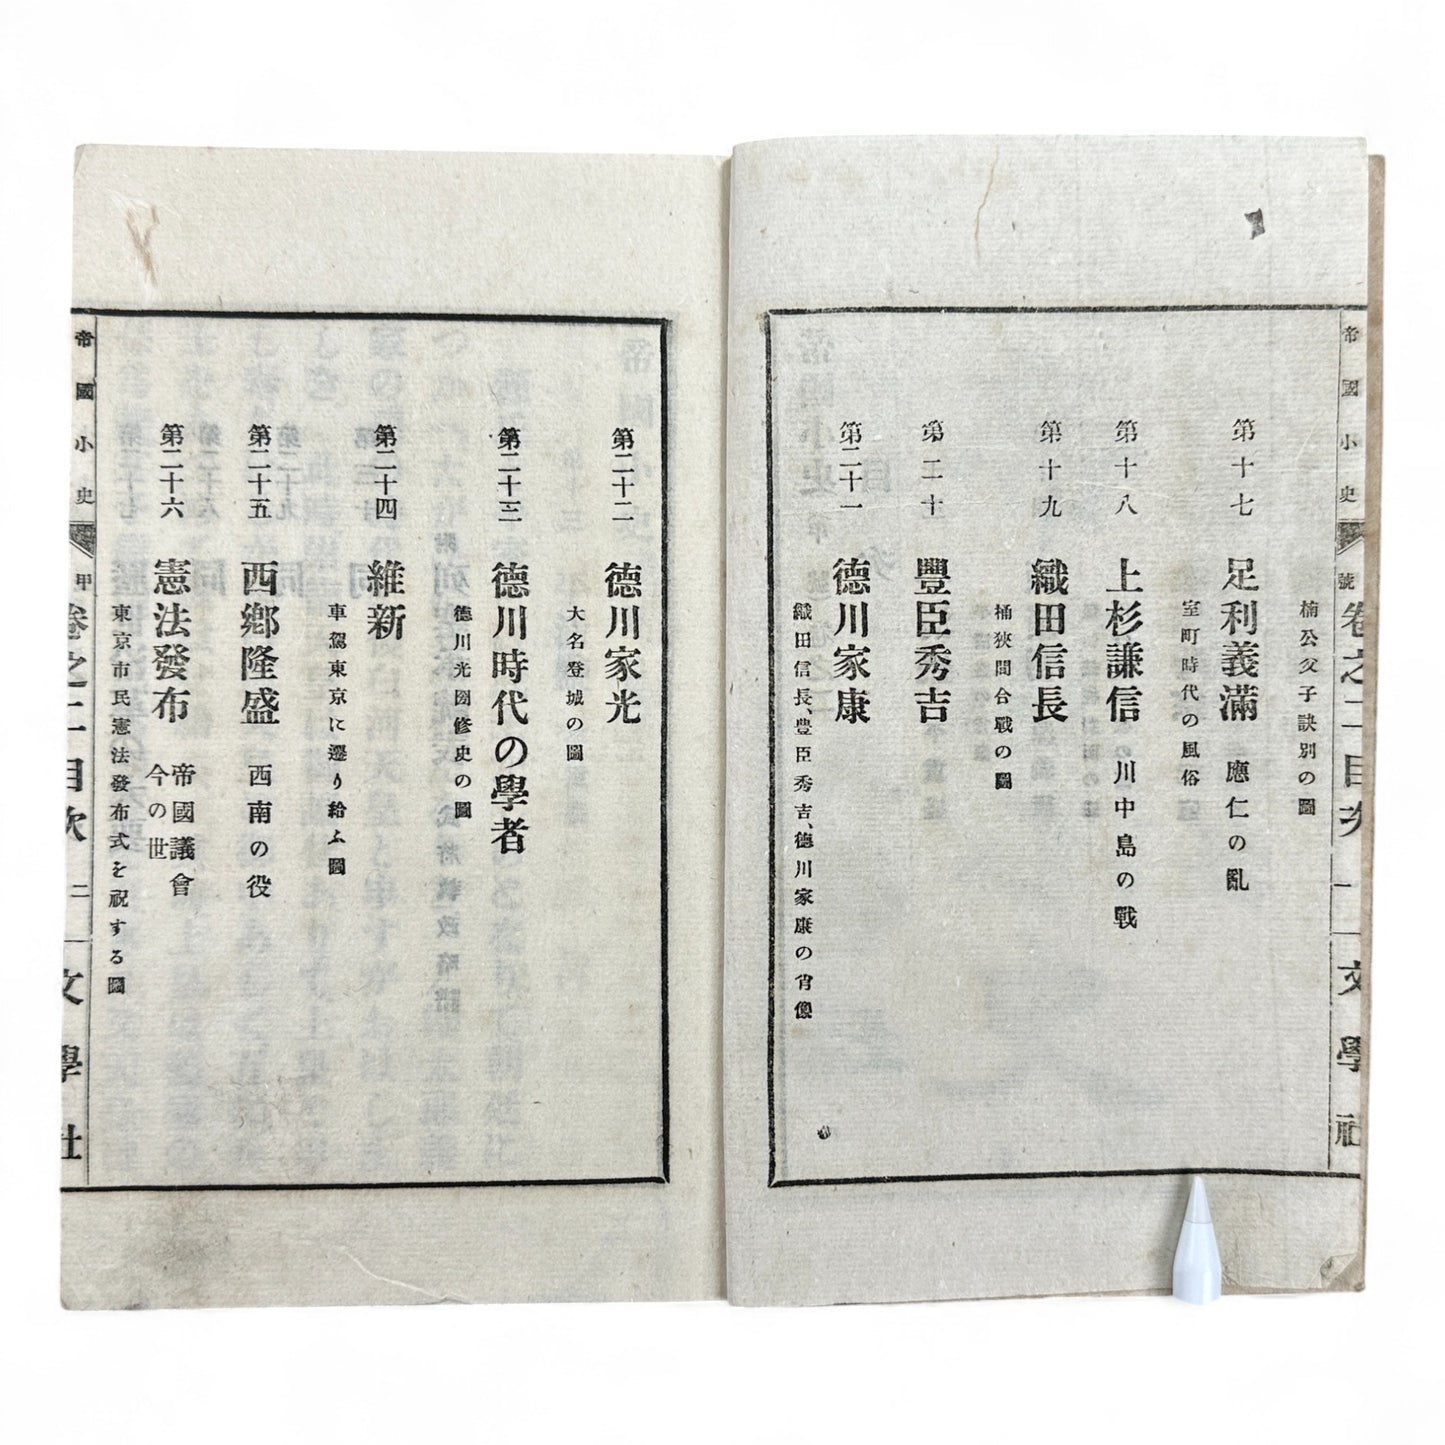 楠公父子訣別の圖
第十七 足利義滿 應仁の亂
室町時代の風俗
第十八 上杉謙信 川中島の戰
第十九 織田信長
桶狹間合戰の圖
第二十 豐臣秀吉
第二十一 德川家康
織田信長、豐臣秀吉、德川家康の肖像
第二十二 德川家光
大名登城の圖
第二十三 德川時代の學者
德川光圀修史の圖
第二十四 維新
車駕東京に遷り給ふ圖
第二十五 西鄕隆盛 西南の役
第二十六 憲法發布 帝國議會
今の世
東京市民憲法發布式を祝する圖
帝國小史 甲 卷之二目次 二 文學社
帝國小史 號 卷之二目次 一 文學社